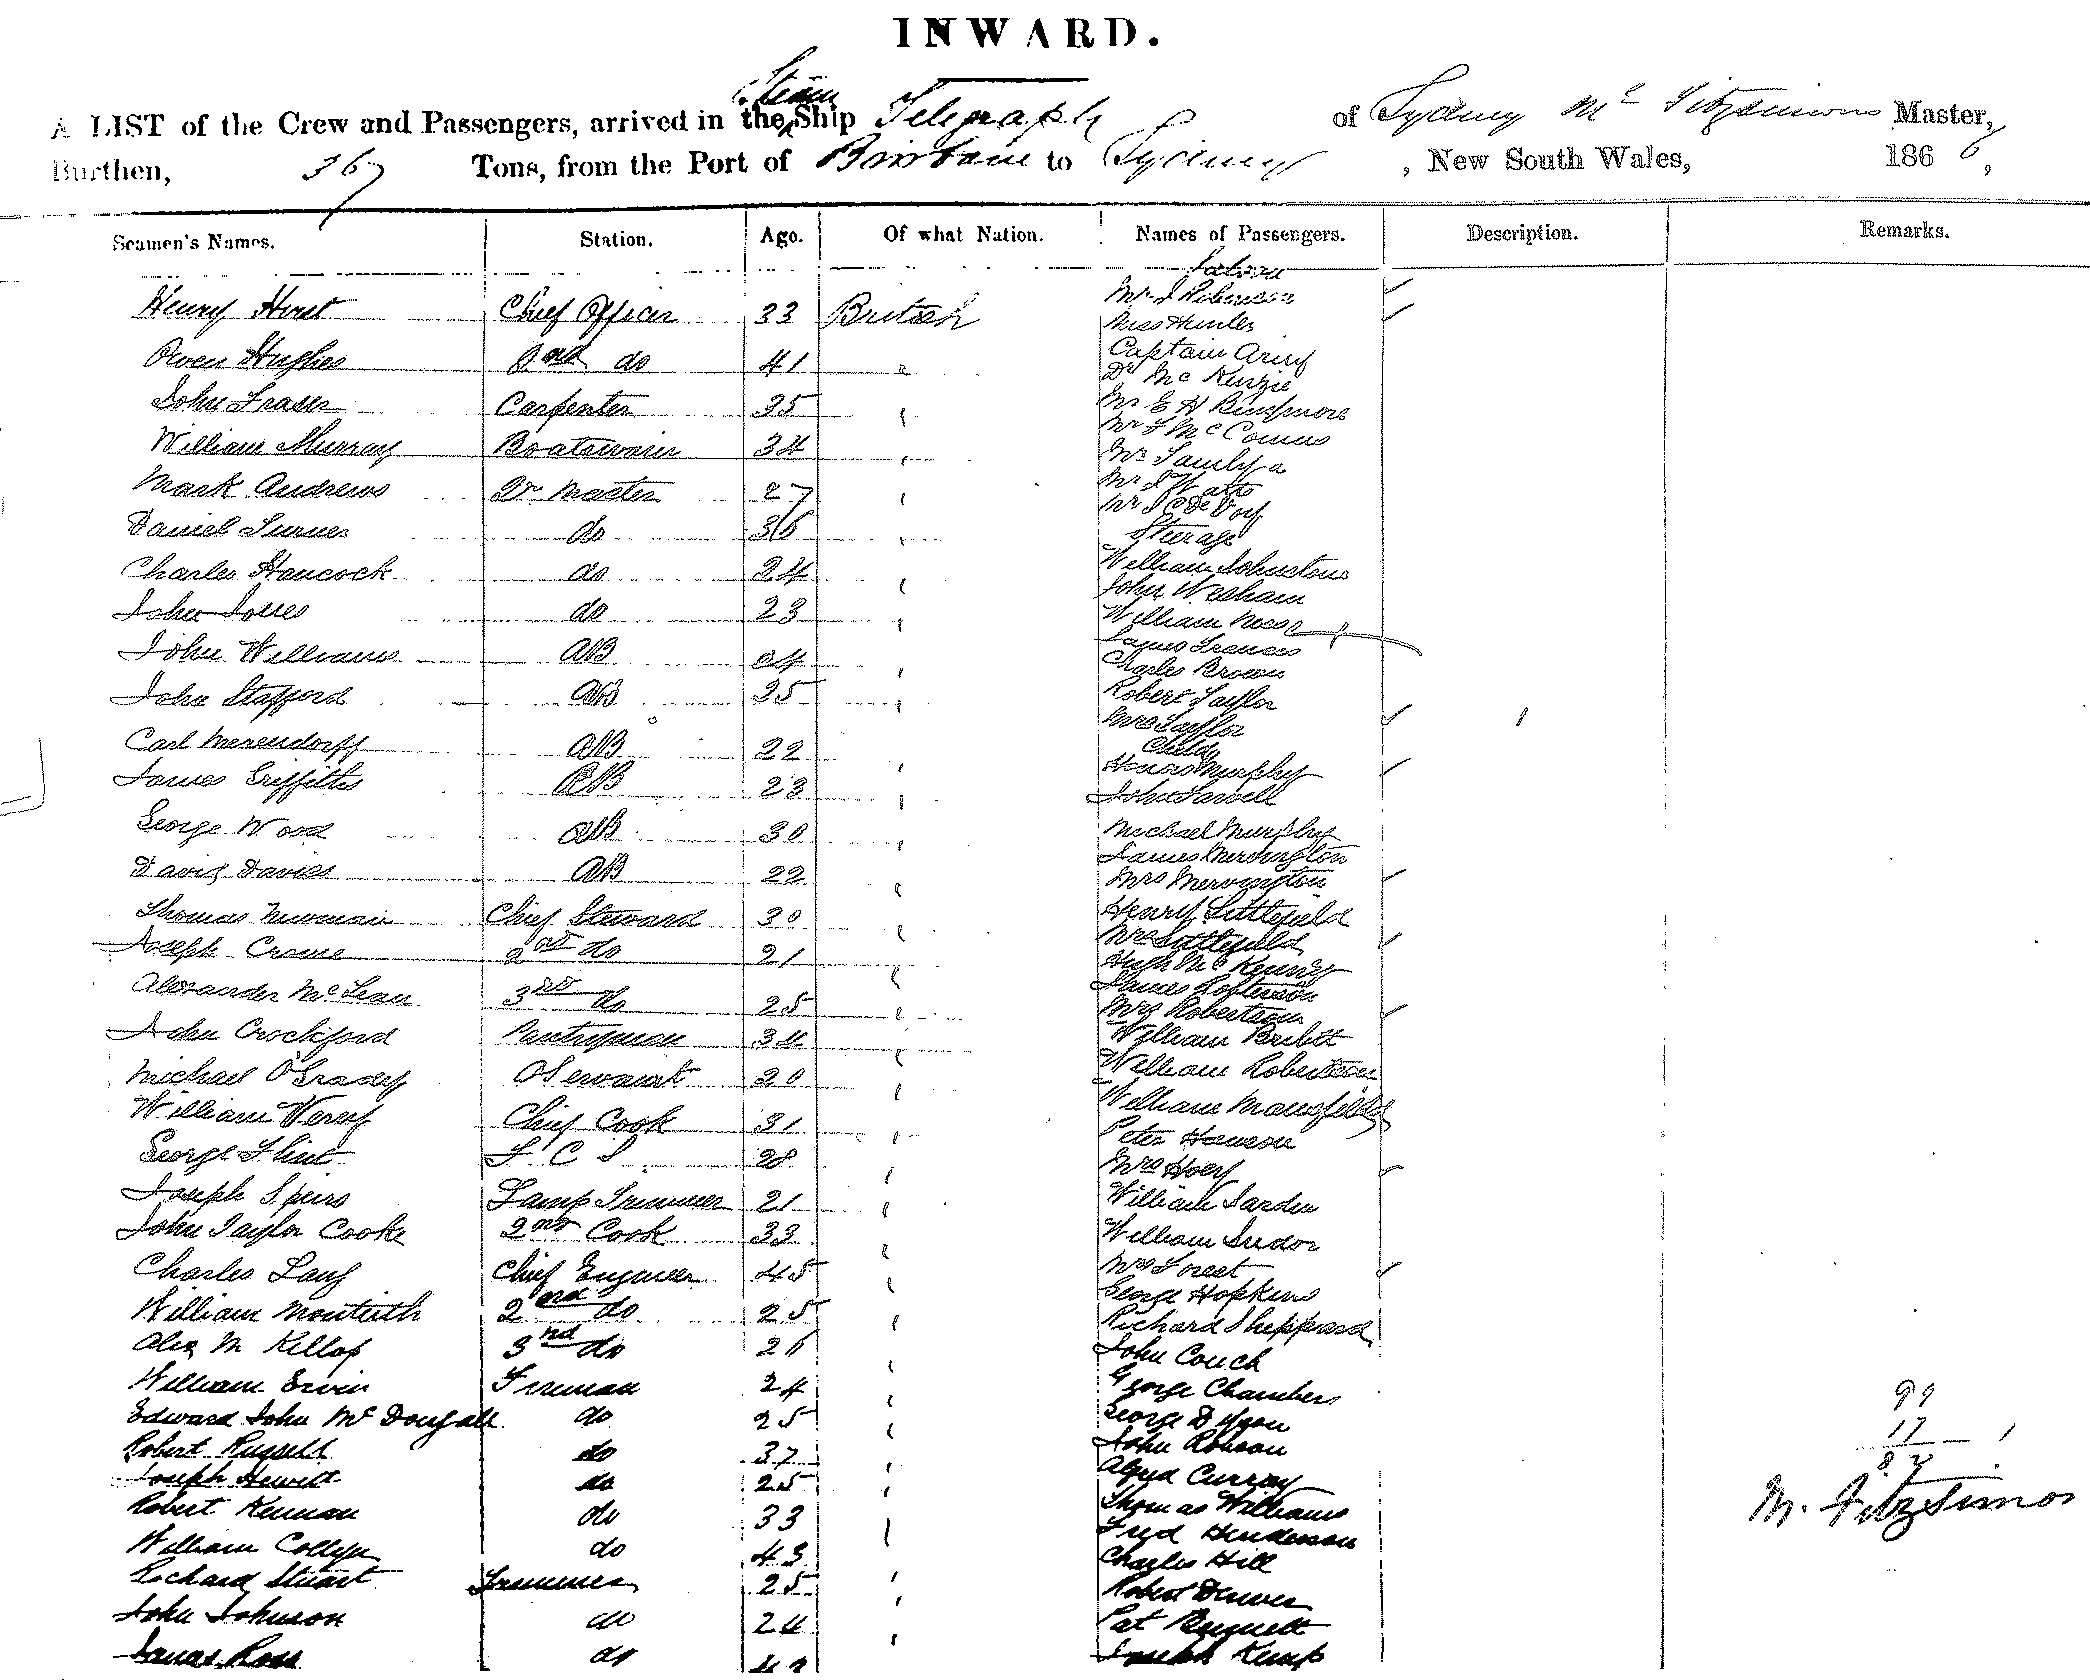 INWARD.
Steam
A LIST of the Crew and Passengers, arrived in the Ship Telegraph of Sydney Mc Fitzsimons Master,
Burthen, 367 Tons, from the Port of Brisbane to Sydney, New South Wales, 1866,
Seamen's Names. Station. Age. Of what Nation. Names of Passengers. Description. Remarks.
Saloon
Mr J Robinson
Henry Hirst Chief Officer 33 British
Miss Hunter
Captain
Owen Hughes 2nd do 41 "
Dr McKenzie
John Fraser Carpenter 35 "
Mr E H
Mr McComus
William Murray Boatswain 34 "
Mr
Mark Andrews Qr Master 27 "
Mr J Watts
Mr J
Daniel Turner do 36 "
Steerage
William Johnstone
Charles Hancock do 24 "
John Wesham
John Jones do 23 "
William
James Francis
John Williams AB 24 "
Charles Brown
John Stafford AB 35 "
Robert Taylor
Mrs Taylor
Carl Merendorff AB 22 "
Child
Murphy
James Griffiths AB 23 "
John
George Wood AB 30 "
Michael Murphy
James Mervington
David Davies AB 22 "
Mrs Mervington
Thomas Newman Chief Steward 30 "
Henry Littlefield
Mrs Littlefield
Joseph Crowe 2nd do 21 "
Hugh McKenny
James Robertson
Alexander McLean 3rd do 25 "
Mrs Robertson
John Crockford Pantryman 34 "
William
William Robertson
Michael O'Grady O Servant 20 "
William Mansfield
William Chief Cook 31 "
Peter
George Flint F C S 28 "
Mrs Hoey
Joseph Spiers Lamp Trimmer 21 "
William
John Taylor Cooke 2nd Cook 33 "
William
Charles Lang Chief Engineer 45 "
Mrs
George Hopkins
William Monteith 2nd do 25 "
Richard Sheppard
Alex M Killop 3rd do 26 "
John Couch
William Ervin Fireman 24 "
George Chambers
Edward John McDougall do 25 "
George
Robert Russell do 37 "
John Robson
99
17
Joseph Hewett do 25 "
Alfred Curray
82
M. Fitzsimons
Robert Keenan do 33 "
Thomas Williams
Fred Henderson
William College do 43
Charles Hill
Richard Stuart Trimmer 25 "
Robert
John Johnson do 24 "
Pat
James Ross do 42 "
Joseph Kemp